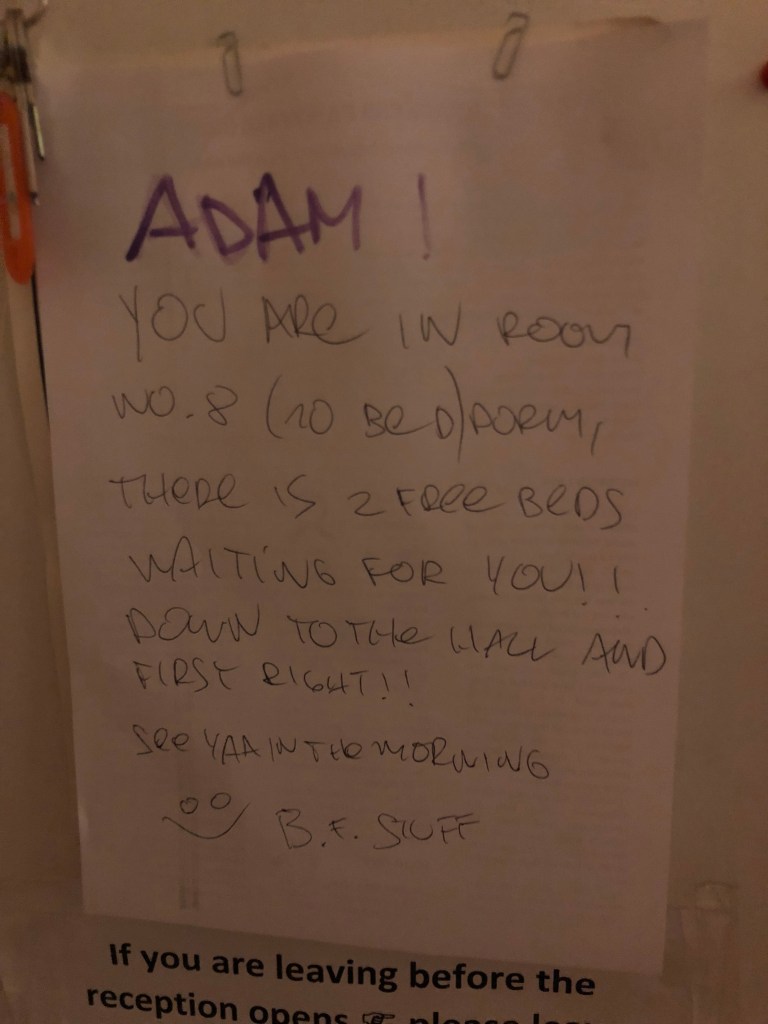 ADAM!
YOU ARE IN ROOM
NO. 8 (10 BED) DORM,
THERE IS 2 FREE BEDS
WAITING FOR YOU!!
DOWN TO THE HALL AND
FIRST RIGHT!!
SEE YAA IN THE MORNING
B.F. STUFF
If you are leaving before the
reception opens ☞ please